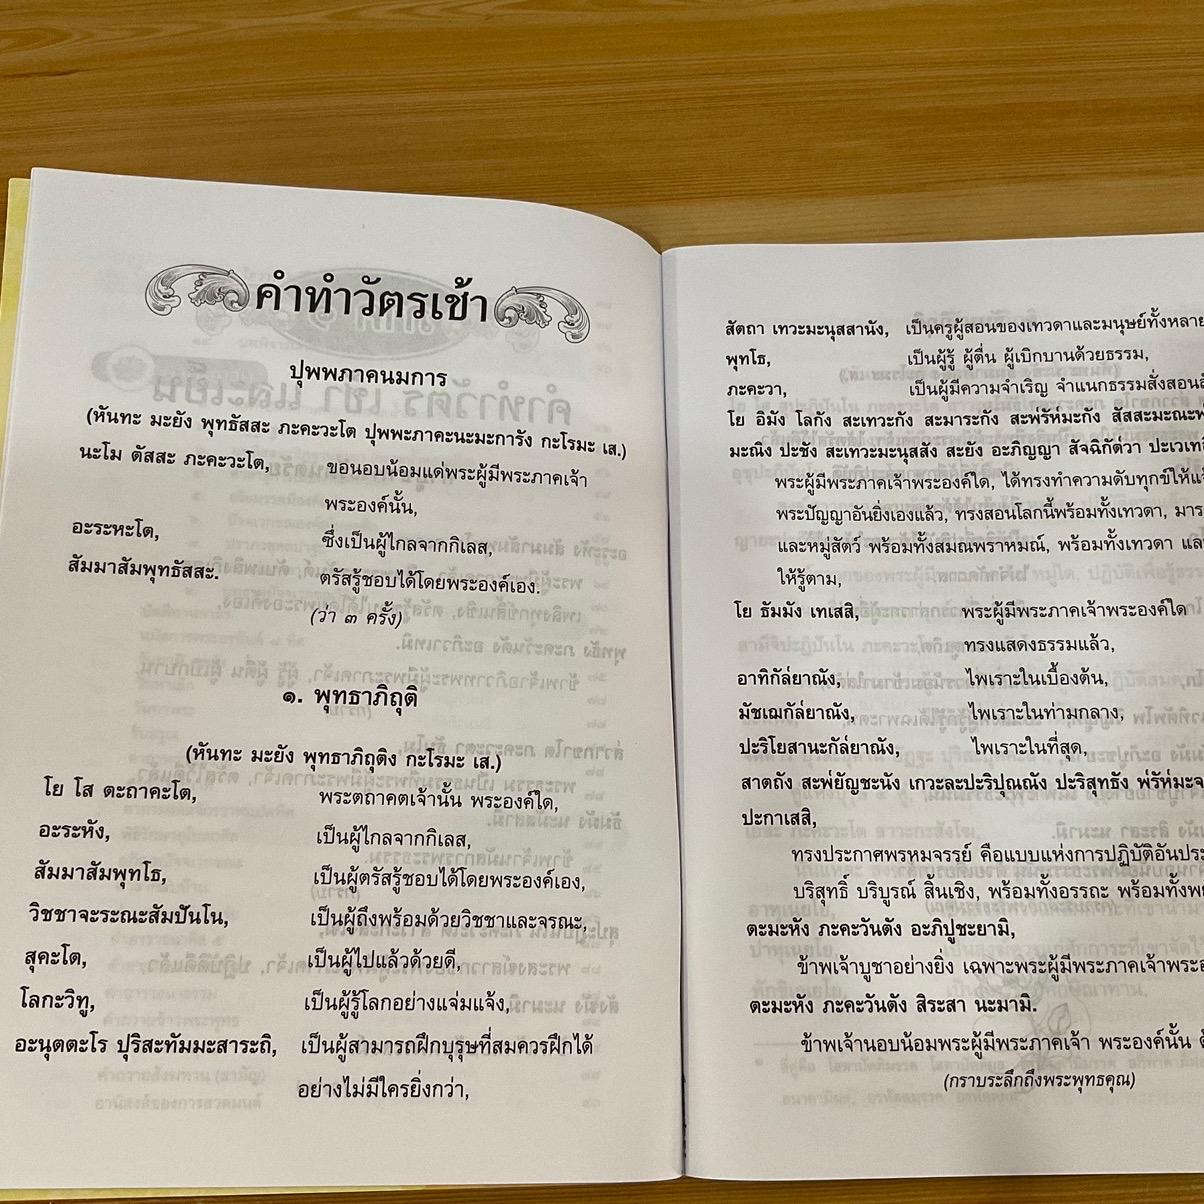 คำทำวัตรเช้า
ปุพพภาคนมการ
(หันทะ มะยัง พุทธัสสะ ภะคะวะโต ปุพพะภาคะนะมะการัง กะโรมะ เส.)
นะโม ตัสสะ ภะคะวะโต, ขอนอบน้อมแด่พระผู้มีพระภาคเจ้า
พระองค์นั้น,
อะระหะโต, ซึ่งเป็นผู้ไกลจากกิเลส,
สัมมาสัมพุทธัสสะ. ตรัสรู้ชอบได้โดยพระองค์เอง.
(ว่า ๓ ครั้ง)
๑. พุทธาภิถุติ
(หันทะ มะยัง พุทธาภิถุติง กะโรมะ เส.)
โย โส ตะถาคะโต, พระตถาคตเจ้านั้น พระองค์ใด,
อะระหัง, เป็นผู้ไกลจากกิเลส,
สัมมาสัมพุทโธ, เป็นผู้ตรัสรู้ชอบได้โดยพระองค์เอง,
วิชชาจะระณะสัมปันโน, เป็นผู้ถึงพร้อมด้วยวิชชาและจรณะ,
สุคะโต, เป็นผู้ไปแล้วด้วยดี,
โลกะวิทู, เป็นผู้รู้โลกอย่างแจ่มแจ้ง,
อะนุตตะโร ปุริสะทัมมะสาระถิ, เป็นผู้สามารถฝึกบุรุษที่สมควรฝึกได้
อย่างไม่มีใครยิ่งกว่า,
สัตถา เทวะมะนุสสานัง, เป็นครูผู้สอนของเทวดาและมนุษย์ทั้งหลาย
พุทโธ, เป็นผู้รู้ ผู้ตื่น ผู้เบิกบานด้วยธรรม,
ภะคะวา, เป็นผู้มีความจำเริญ จำแนกธรรมสั่งสอน
โย อิมัง โลกัง สะเทวะกัง สะมาระกัง สะพ๎รัห๎มะกัง
มะณิง ปะชัง สะเทวะมะนุสสัง สะยัง อะภิญญา สัจฉิกัต๎วา
พระผู้มีพระภาคเจ้าพระองค์ใด, ได้ทรงทำความดับทุกข์ให้
พระปัญญาอันยิ่งเองแล้ว, ทรงสอนโลกนี้พร้อมทั้งเทวดา, มาร
และหมู่สัตว์ พร้อมทั้งสมณพราหมณ์, พร้อมทั้งเทวดา
ให้รู้ตาม,
โย ธัมมัง เทเสสิ, พระผู้มีพระภาคเจ้าพระองค์ใด
ทรงแสดงธรรมแล้ว,
อาทิกัล๎ยาณัง, ไพเราะในเบื้องต้น,
มัชเฌกัล๎ยาณัง, ไพเราะในท่ามกลาง,
ปะริโยสานะกัล๎ยาณัง, ไพเราะในที่สุด,
สาตถัง สะพ๎ยัญชะนัง เกวะละปะริปุณณัง ปะริสุทธัง
ปะกาเสสิ,
ทรงประกาศพรหมจรรย์ คือแบบแห่งการปฏิบัติอัน
บริสุทธิ์ บริบูรณ์ สิ้นเชิง, พร้อมทั้งอรรถะ พร้อมทั้ง
ตะมะหัง ภะคะวันตัง อะภิปูชะยามิ,
ข้าพเจ้าบูชาอย่างยิ่ง เฉพาะพระผู้มีพระภาคเจ้า
ตะมะหัง ภะคะวันตัง สิระสา นะมามิ.
ข้าพเจ้านอบน้อมพระผู้มีพระภาคเจ้า พระองค์นั้น
(กราบระลึกถึงพระพุทธคุณ)